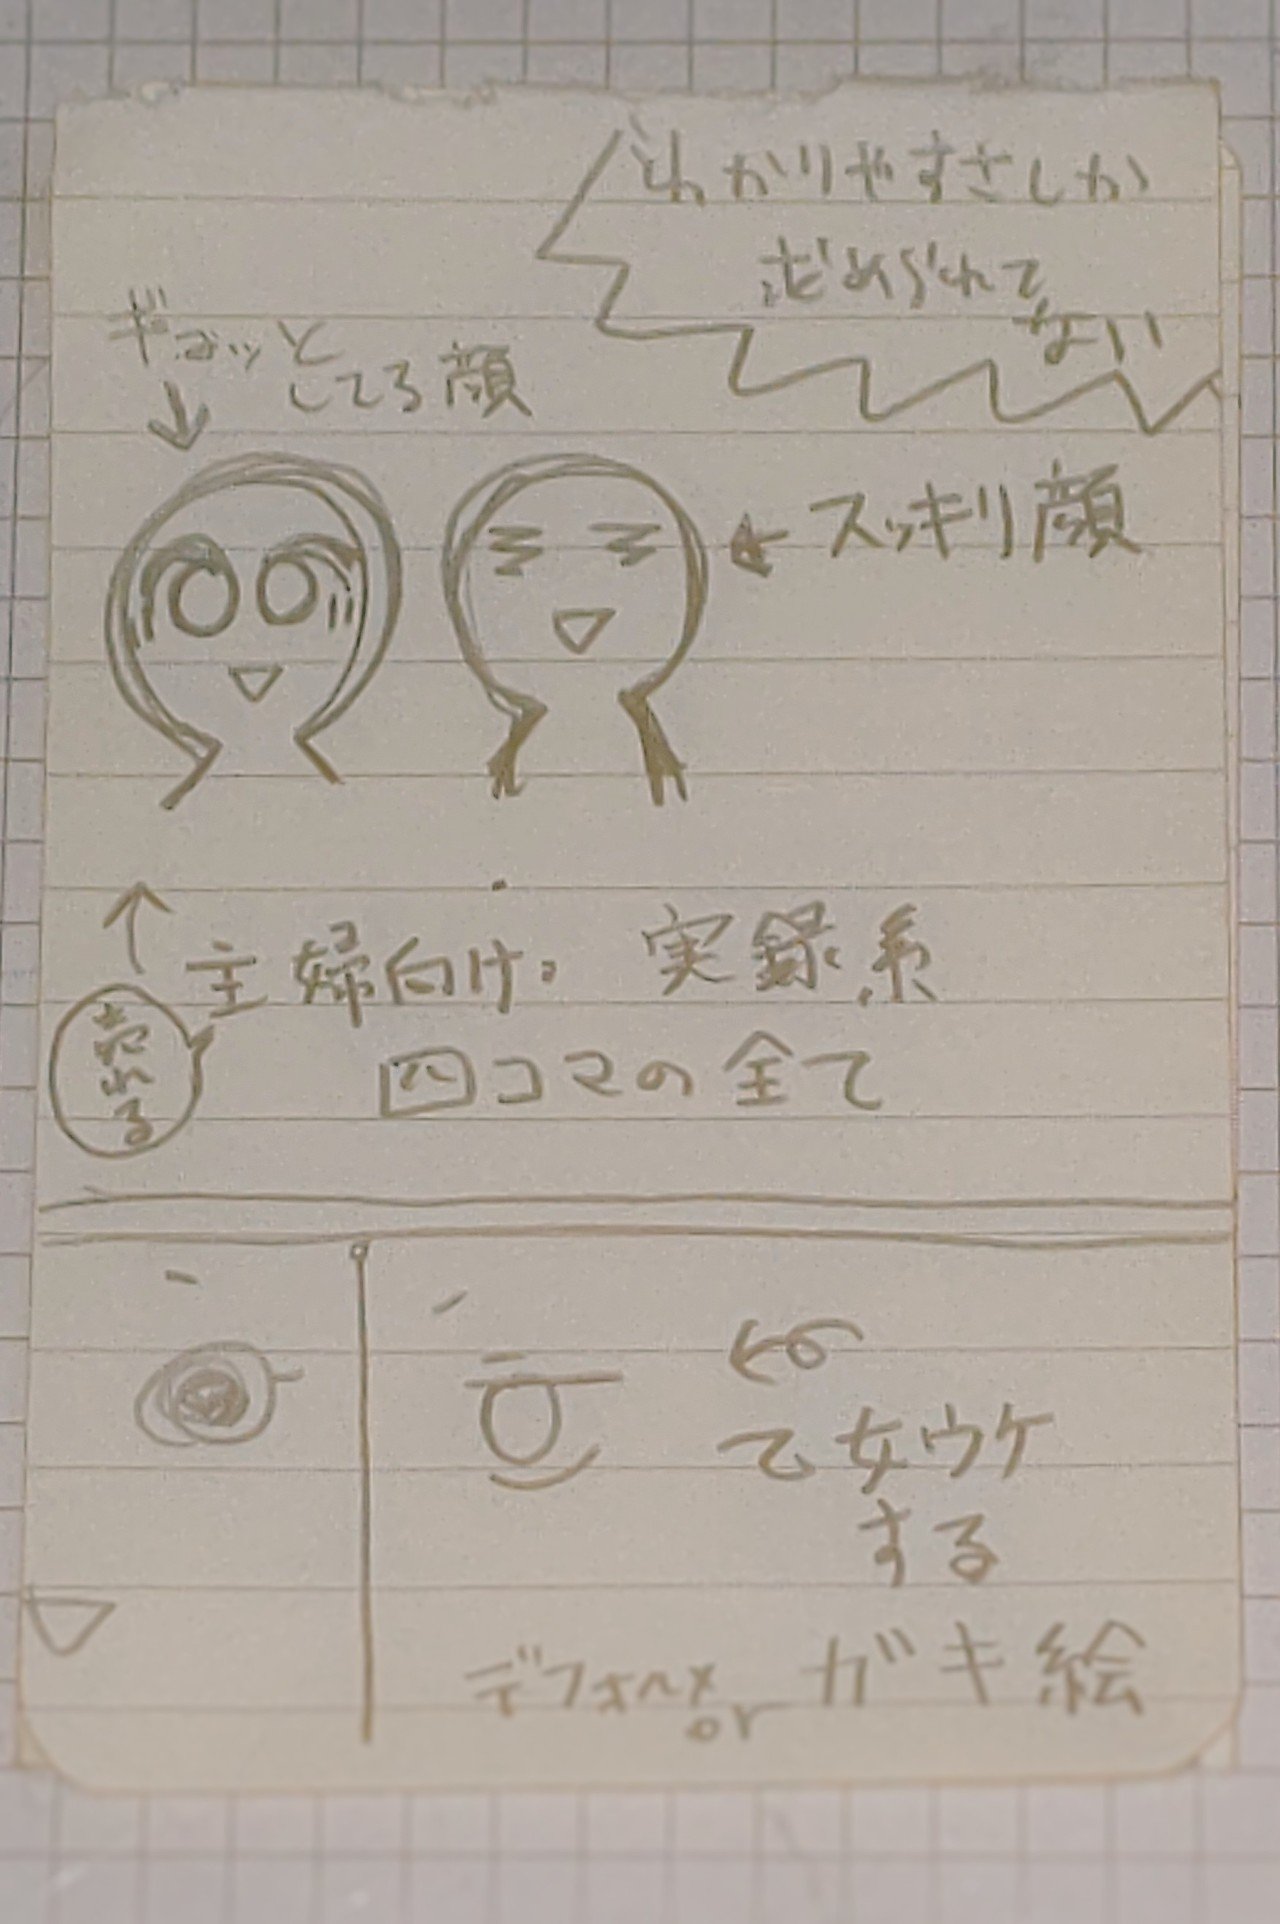 わかりやすさしか
求められて
ない
ギョッと
してる顔
スッキリ顔
主婦向け。実録系
四コマの全て
売れる
て女ウケ
する
デフォルメ
or ガキ絵